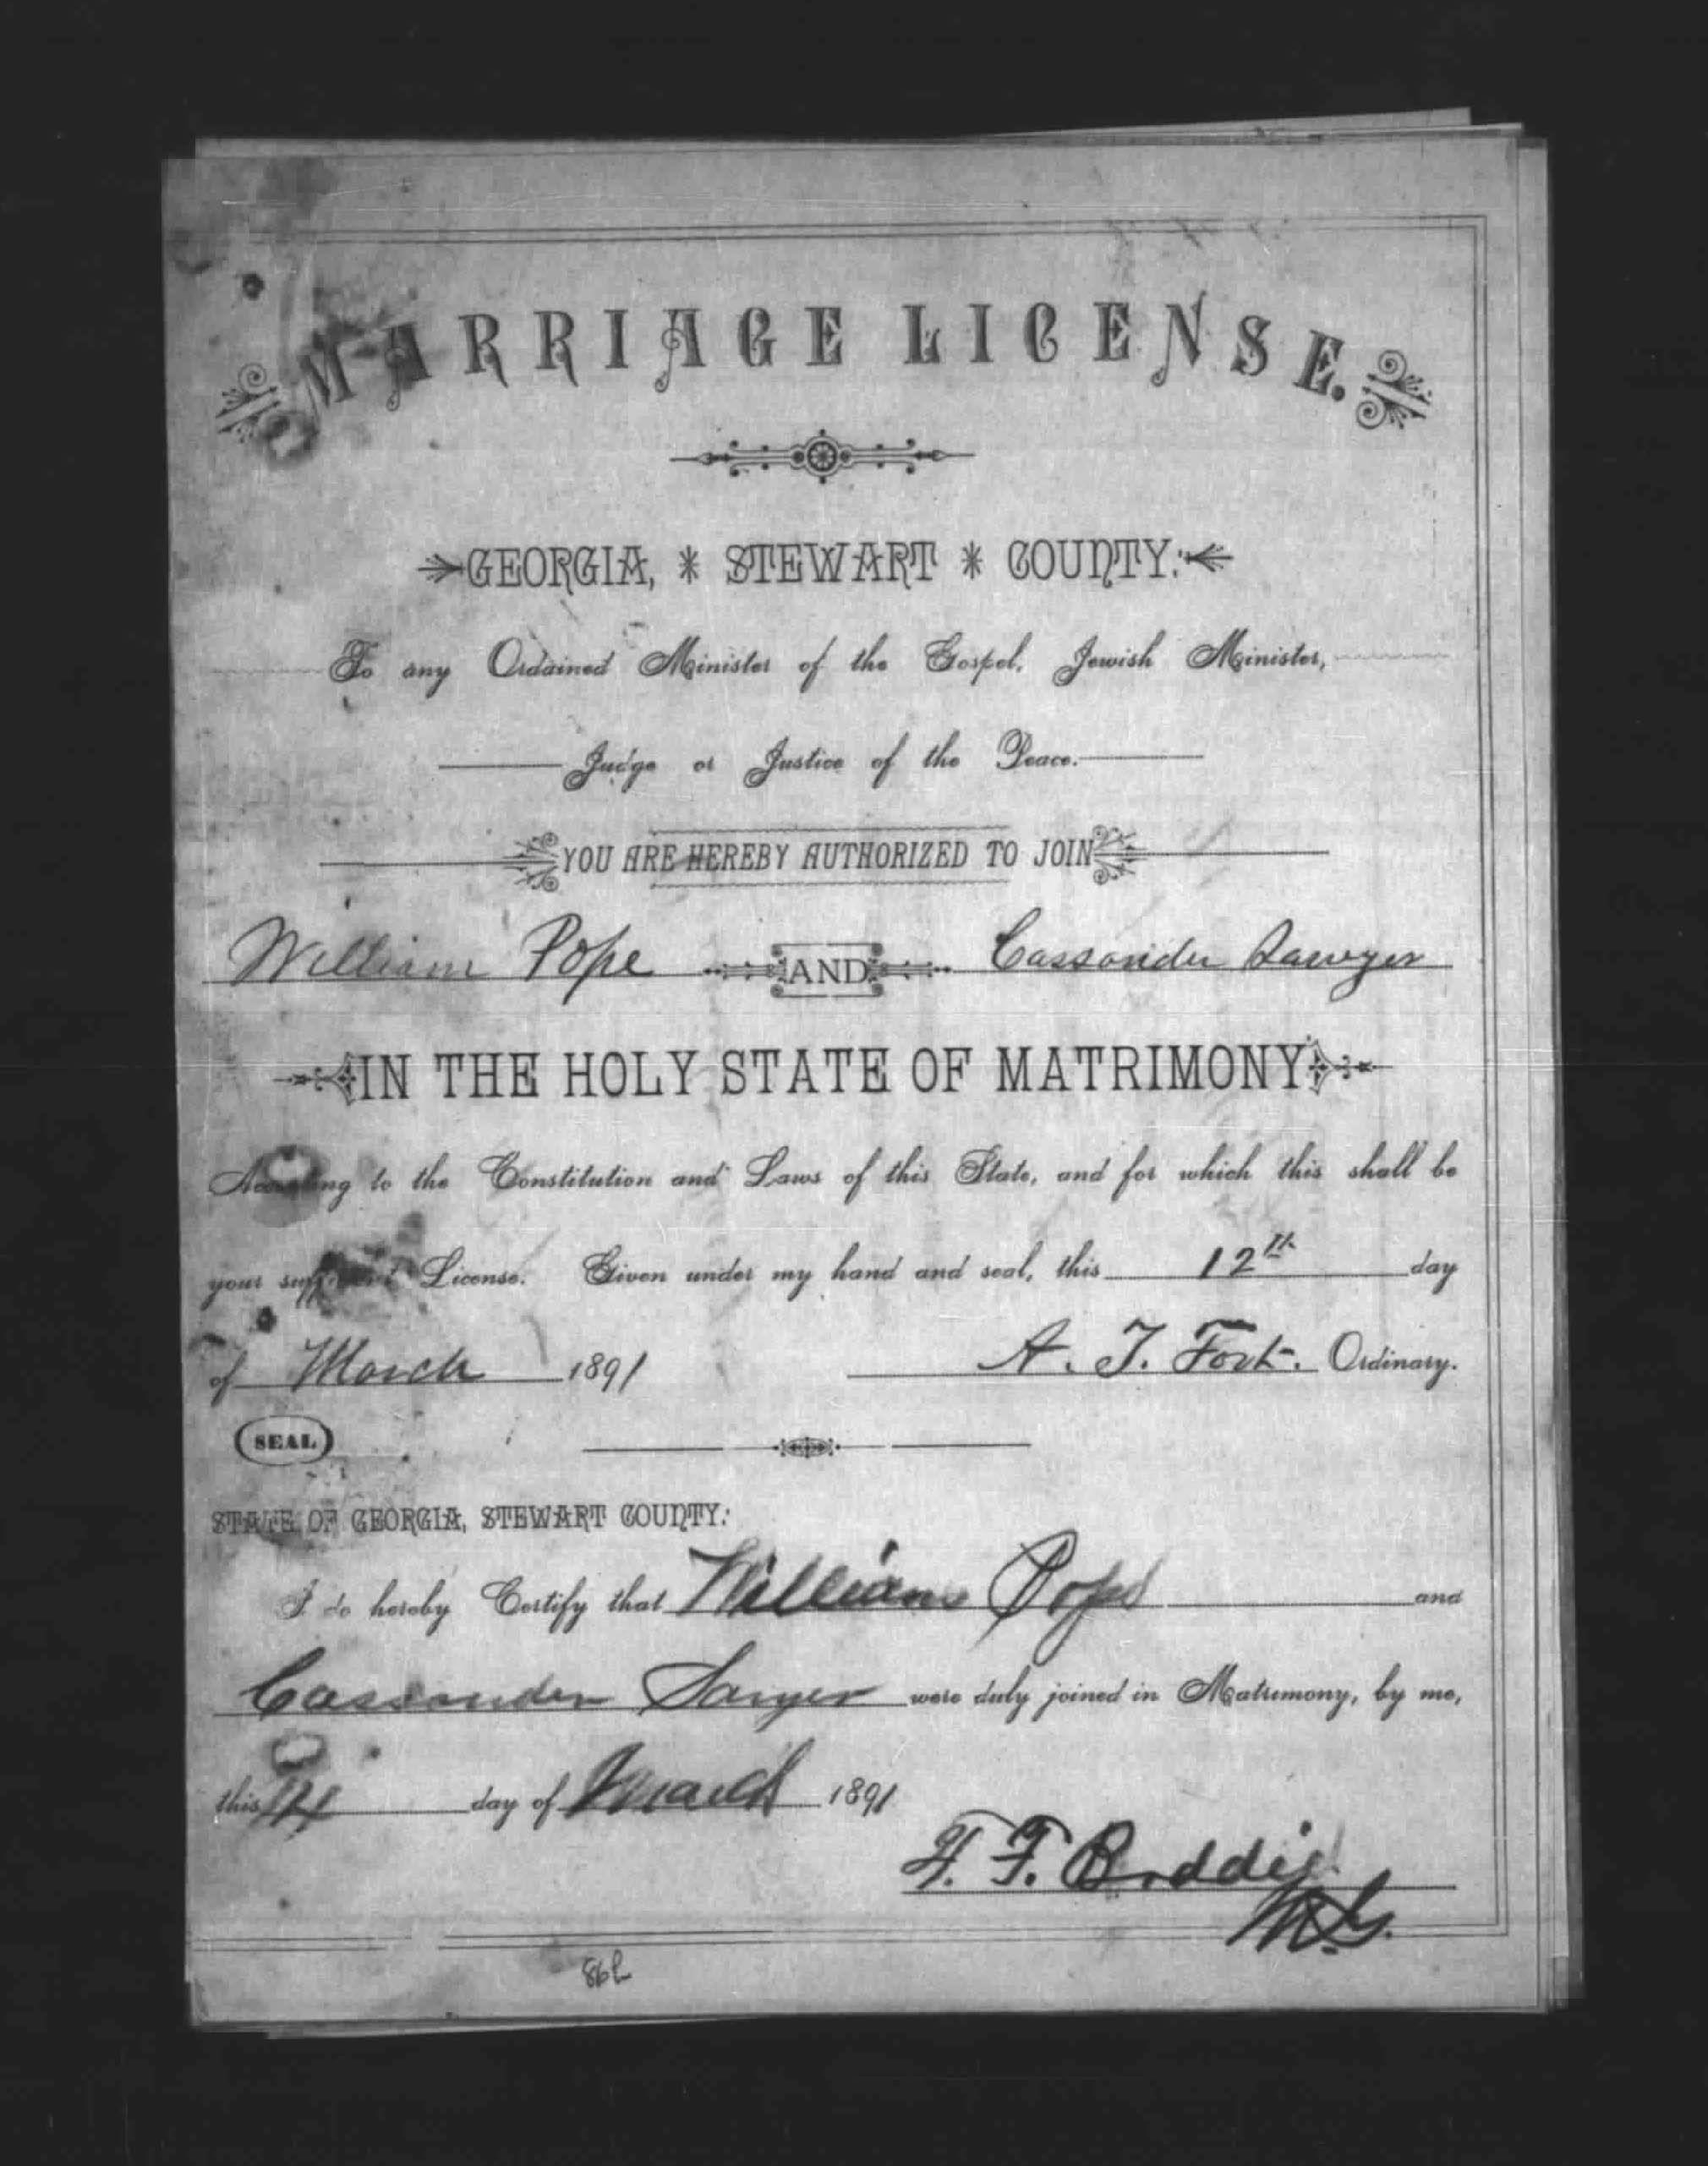 MARRIAGE LICENSE.
GEORGIA, * STEWART * COUNTY:
To any Ordained Minister of the Gospel, Jewish Minister,
Judge or Justice of the Peace.
YOU ARE HEREBY AUTHORIZED TO JOIN
William Pope AND Cassander Sawyer
IN THE HOLY STATE OF MATRIMONY
According to the Constitution and Laws of this State, and for which this shall be
your sufficient License. Given under my hand and seal, this 12th day
of March 1891 A. T. Fort. Ordinary.
SEAL
STATE OF GEORGIA, STEWART COUNTY:
I do hereby Certify that William Pope and
Cassander Sawyer were duly joined in Matrimony, by me,
this 14 day of March 1891
F. F. Boddie
M.G.